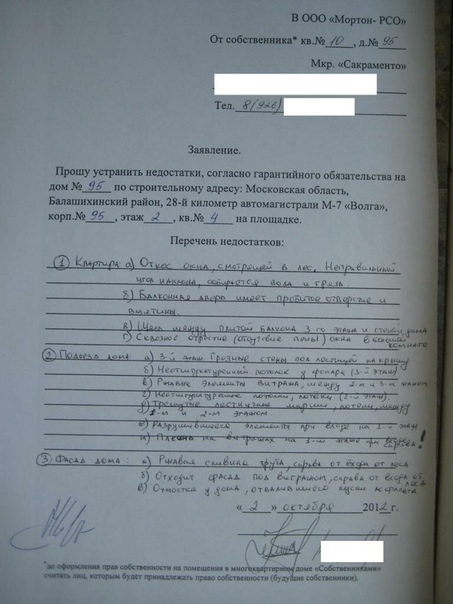 В ООО «Мортон- РСО»
От собственника* кв.№ 10 , д.№ 95
Мкр. «Сакраменто»
Тел. 8(926)
Заявление.
Прошу устранить недостатки, согласно гарантийного обязательства на
дом № 95 по строительному адресу: Московская область,
Балашихинский район, 28-й километр автомагистрали М-7 «Волга»,
корп.№ 95 , этаж 2 , кв.№ 4 на площадке.
Перечень недостатков:
1) Квартира а) Откос окна, смотрящей в лес. Неправильный
угол наклона, собирается вода и грязь.
б) Балконная дверь имеет пробитое отверстие и
вмятины.
в) Щель между плитой балкона 3-го этажа и стеной дома
г) Сквозное отверстие (отсутствие пены) окна в большой
комнате
2) Подъезд дома: а) 3-й этаж Грязные стены под лестницей на крышу
б) Неоштукатуренный потолок у фонаря (3-й этаж)
в) Ржавые элементы витража, между 2-м и 3-м этажом
г) Неоштукатуренные потолки (2-й этаж).
д) Треснутые лестничные марши, между
1-м и 2-м этажом
е) элементы при входе на 1-й этаж
Плесень на витражах на 1-м этаже при входе
справа!
3) Фасад дома: а) Ржавая сливная труба, справа от входа от леса
б) Отходит фасад под витражом, справа от входа от
леса
в) Отмостка у дома, отвалившиеся куски
« 2 » октября 2012 г.
*до оформления прав собственности на помещения в многоквартирном доме «Собственниками»
считать лиц, которым будет принадлежать право собственности (будущие собственники).